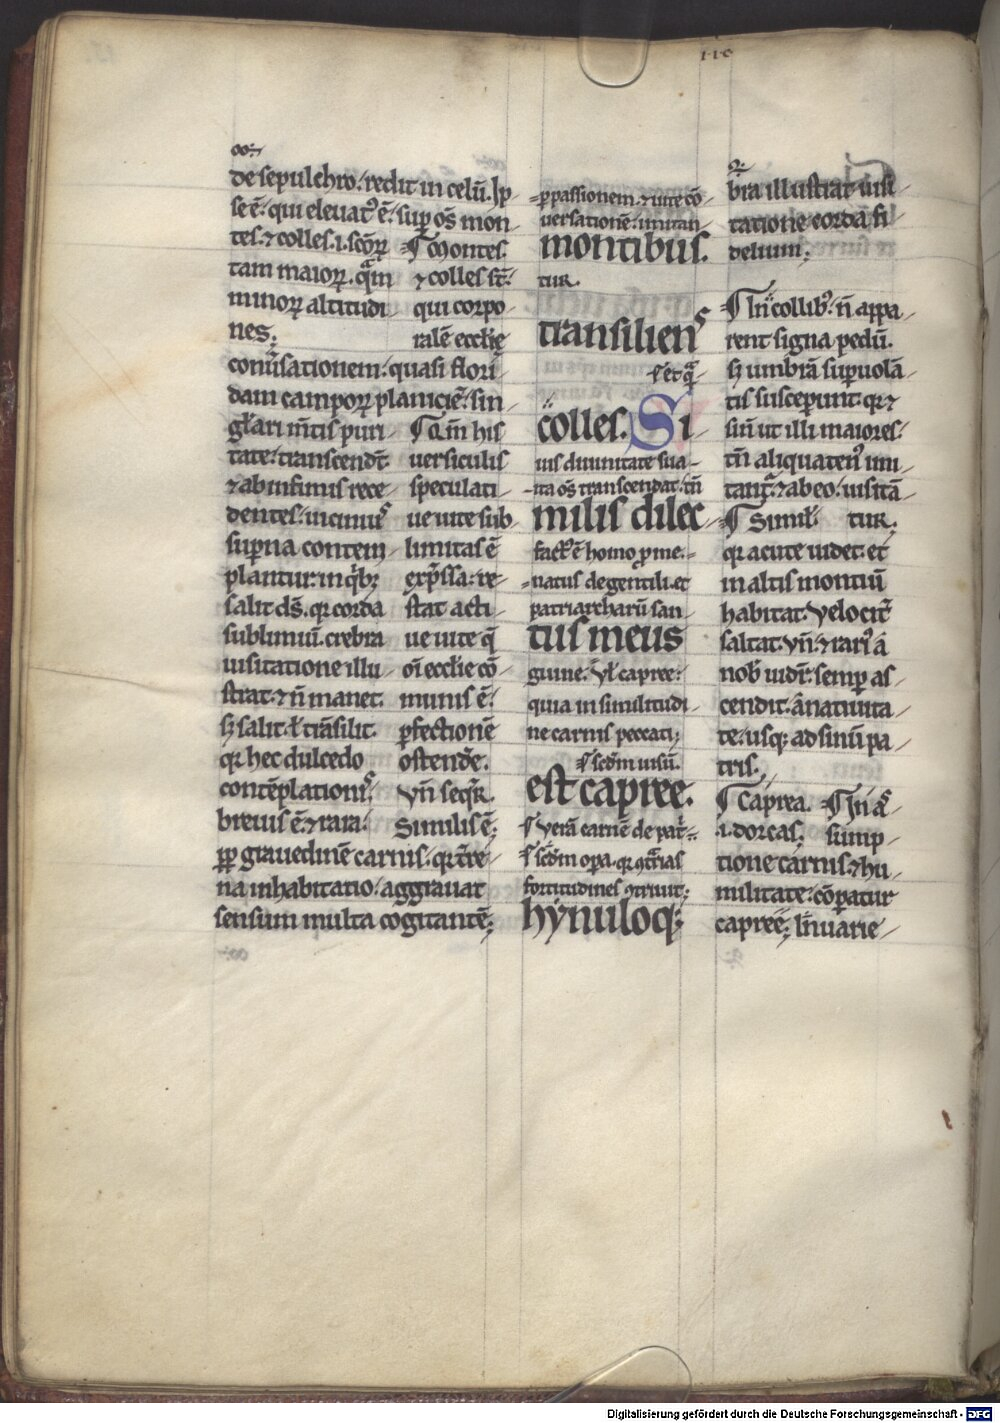 de sepulchro. redit in celū. Ip
se ē. qui eleuatꝰ ē. suꝑ oēs mon
tes. ⁊ colles. i. scōꝝ
tam maioꝝ. quam
minoꝝ altitudi
nes.
¶ Montes
⁊ colles st̄.
qui corpo
ralē eccłie
conuersationem. quasi flori
dam campoꝝ planiciē. sin
glari mētis puri
tate. transcendt̄.
⁊ ab infimis rece
dentes. uicinius
suꝑna contem
plantur. in q̇bꝫ
salit ds̄. qꝛ corda
sublimiū. crebra
uisitatione illu
strat. ⁊ n̄ manet.
sꝫ salit. ł trāsilit.
qꝛ hec dulcedo
contēplationis.
breuis ē. ⁊ rara.
ꝓꝑ grauedinē carnis. qꝛ t̄re
na inhabitatio. aggrauat
sensum multa cogitantē.
¶ Cū his
uersiculis
speculati
ue uite sub
limitas ē
exp̄ssa. re
stat acti
ue uite q̄
oī eccłie cō
munis ē.
ꝑfectionē
ostendē.
vn̄ seqr̄.
Similis ē.
ꝑ passionem. ⁊ uite cō
uersationē. imitan
montibus.
tur.
transiliens
colles. Si
uis diuinitate sua
ita oēs transcendat. tn̄
milis dilec
factꝰ ē homo ꝓ me.
natus de gentili. et
patriarcharū san
tus meus
guine. vł capree.
quia in similitudi
ne carnis peccati.
¶ scdm uisū.
est capree.
¶ Verā carnē de pat̄.
¶ scdm opa. qꝛ ꝯtrarias
fortitudines ꝯtriuit.
hynuloqꝫ
bra illustrat uisi
tatione corda fi
delium.
¶ In collibꝰ. n̄ appa
rent signa pedū.
sꝫ umbrā suꝑuolā
tis susceperunt. qꝛ ⁊
sin̄ ut illi maiores.
tn̄ aliquatenꝰ imi
tant̄. ⁊ ab eo. uisitā
tur.
¶ Simił.
qꝛ acute uidet. et
in altis montiū
habitat. velocit̄
saltat. vn̄. ⁊ rarꝰ ā
nob̄ uidr̄. semꝑ as
cendit. ā natiuita
te. usqꝫ ad sinū pa
tris.
¶ Caprea.
i. dorcas.
¶ In aˢ
sump
tione carnis. ⁊ hu
militate. cōparatur
capree.